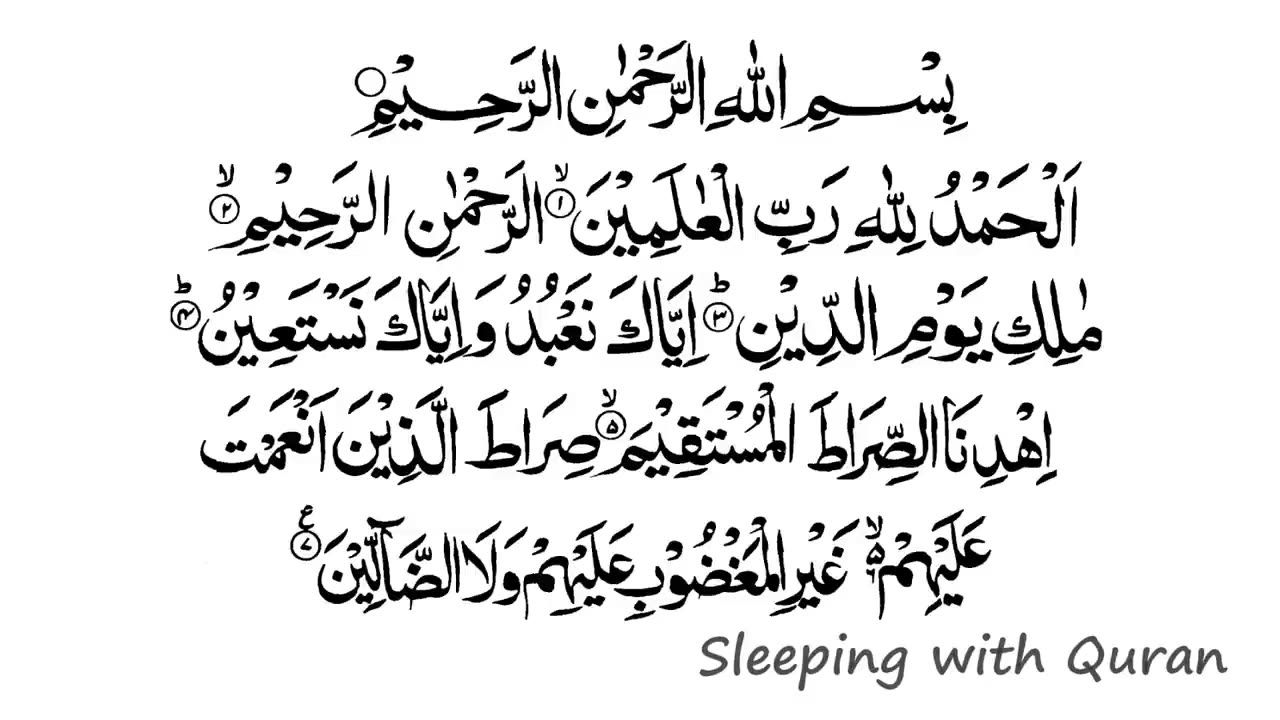 بِسْمِ اللهِ الرَّحْمٰنِ الرَّحِيْمِ ۝
اَلْحَمْدُ لِلّٰهِ رَبِّ الْعٰلَمِيْنَ ۙ﴿۱﴾ الرَّحْمٰنِ الرَّحِيْمِ ۙ﴿۲﴾
مٰلِكِ يَوْمِ الدِّيْنِ ؕ﴿۳﴾ اِيَّاكَ نَعْبُدُ وَ اِيَّاكَ نَسْتَعِيْنُ ؕ﴿۴﴾
اِهْدِنَا الصِّرَاطَ الْمُسْتَقِيْمَ ۙ﴿۵﴾ صِرَاطَ الَّذِيْنَ اَنْعَمْتَ
عَلَيْهِمْ ۙ۵ غَيْرِ الْمَغْضُوْبِ عَلَيْهِمْ وَلَا الضَّآلِّيْنَ ࣖ﴿۷﴾
Sleeping with Quran